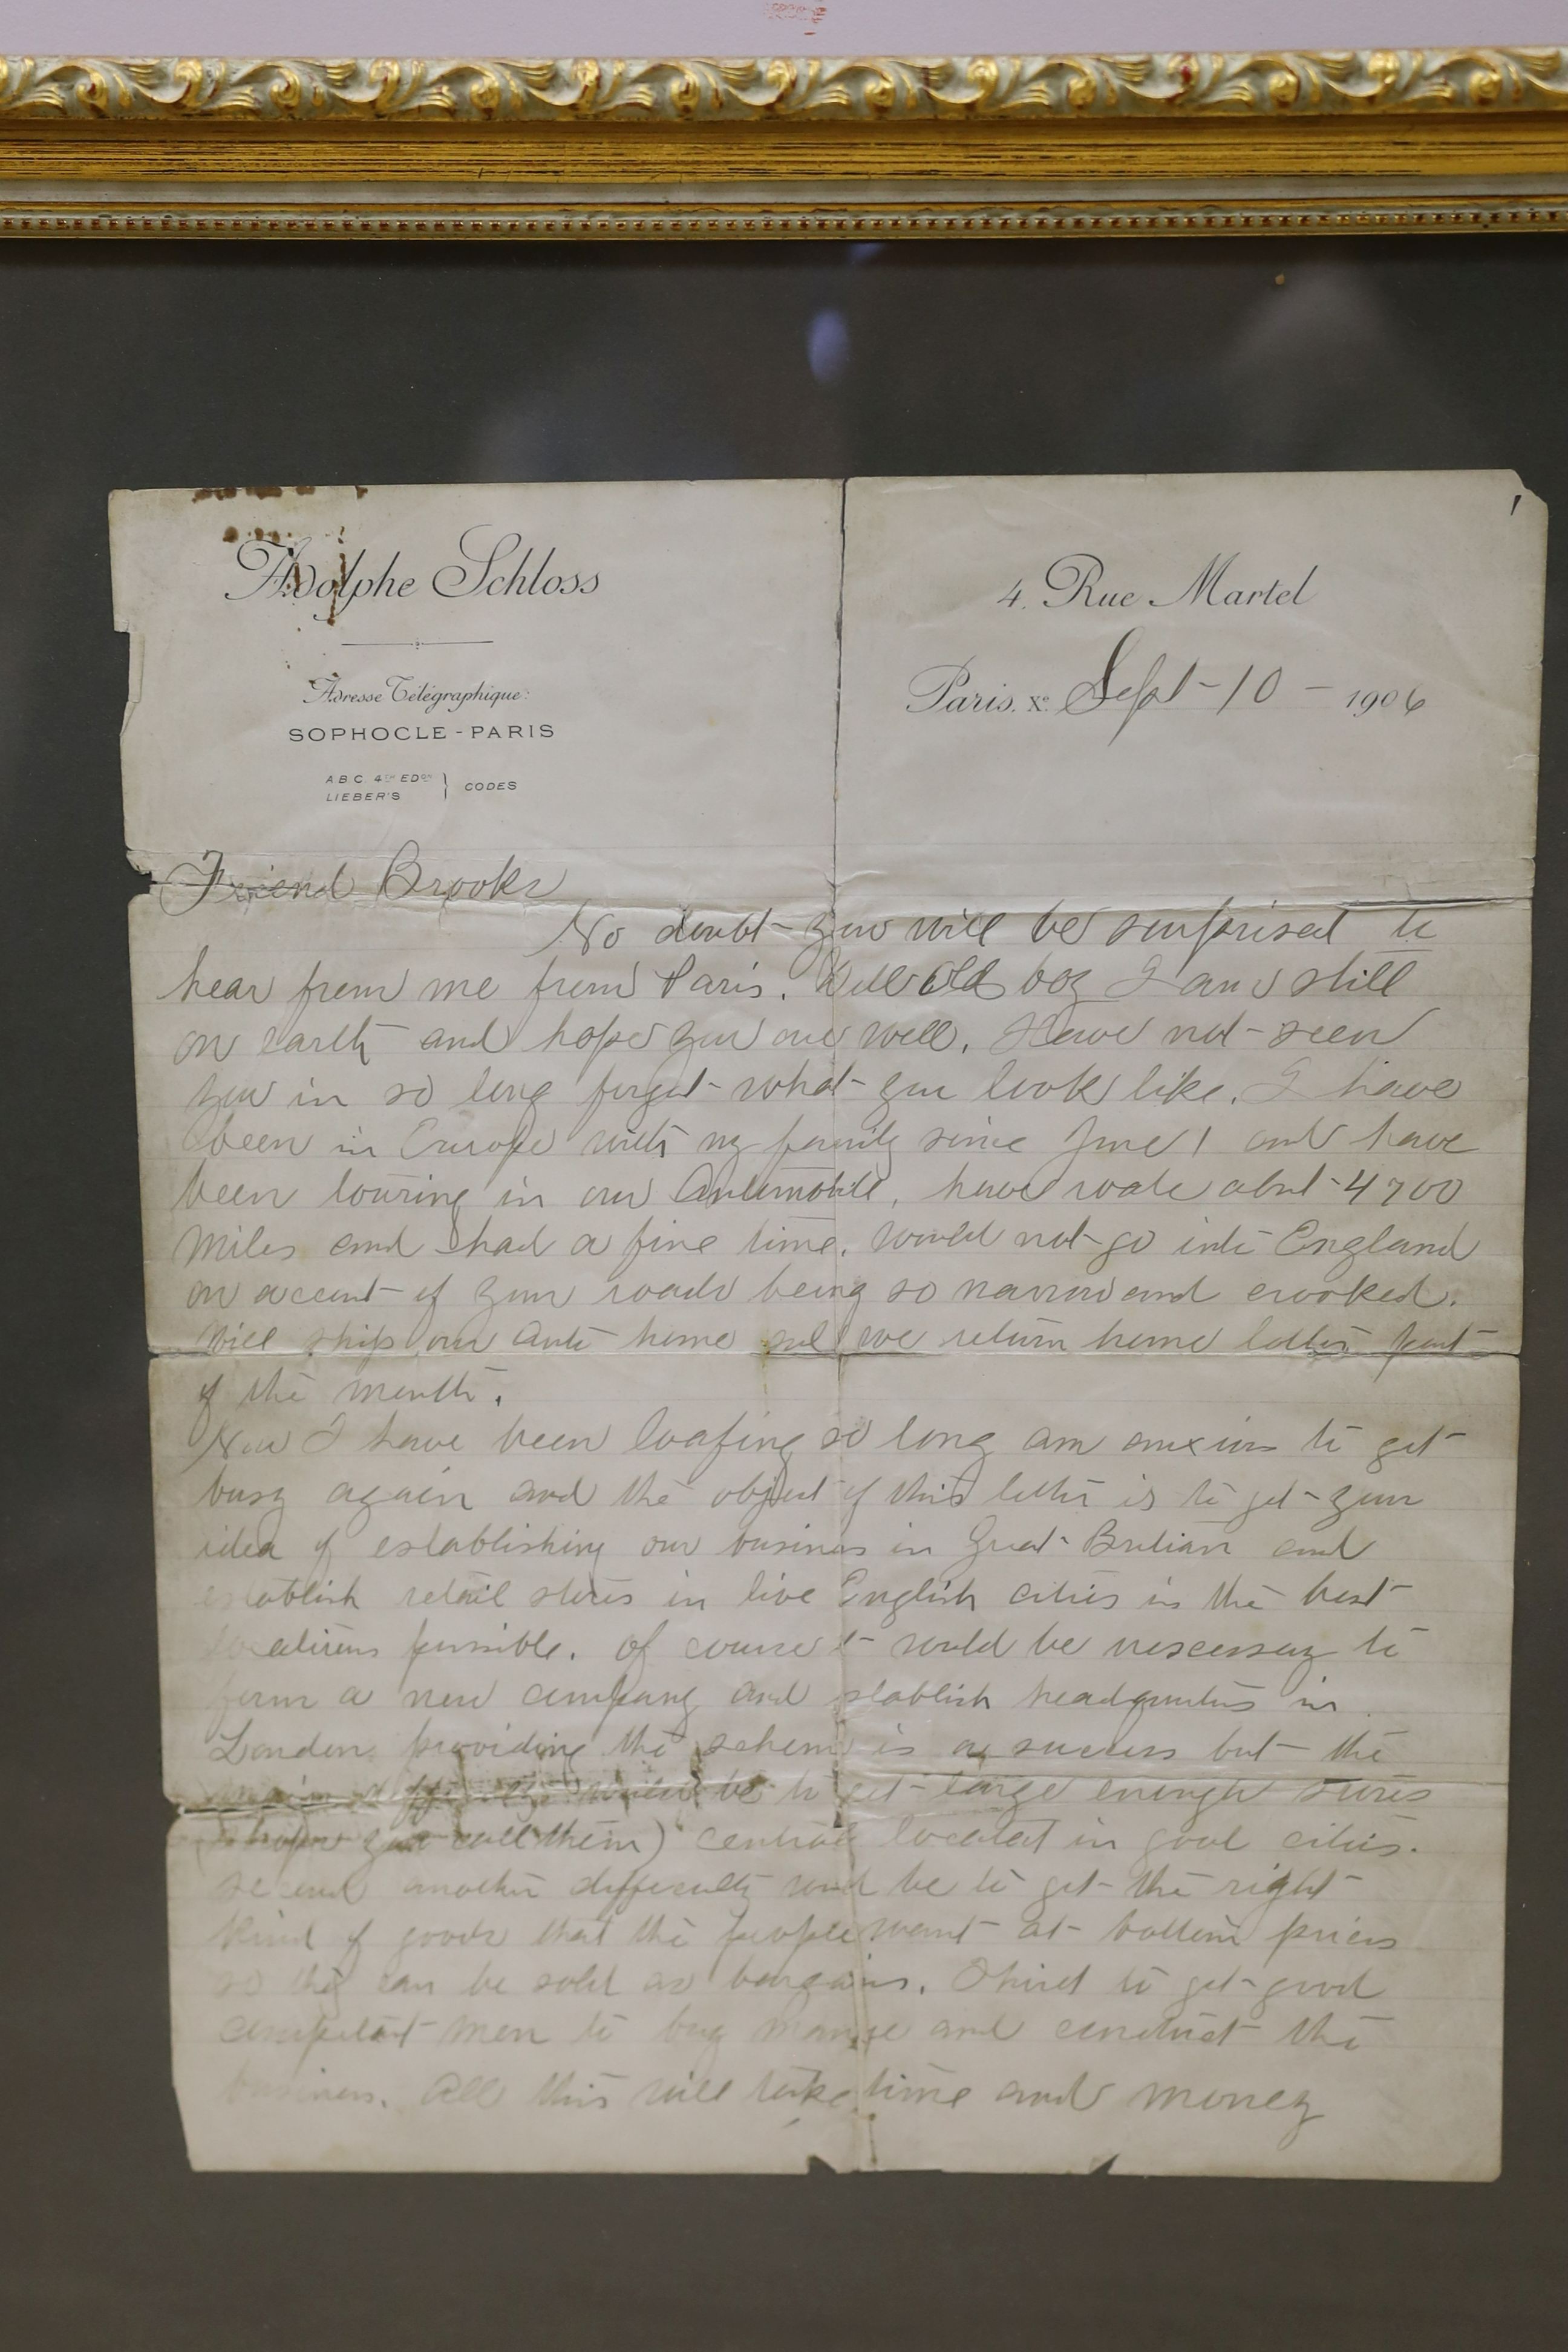 Adolphe Schloss
4. Rue Martel
Adresse Télégraphique:
SOPHOCLE - PARIS
Paris. Xe Sept - 10 - 1906
A B C 4TH EDON
LIEBER'S } CODES
Friend Brooks
No doubt - you will be surprised to
hear from me from Paris. Well old boy I am still
on earth and hope you are well. Have not - seen
you in so long forget - what - you look like. I have
been in Europe with my family since June 1 and have
been touring in our Automobile, have rode about - 4700
miles and had a fine time. would not - go into England
on account - of your roads being so narrow and crooked.
Will ship our Auto home and we return home latter part -
of the month.
Now I have been loafing so long am anxious to get -
busy again and the object of this letter is to get - your
idea of establishing our business in Great - Britian and
establish retail stores in live English cities in the best -
locations possible. Of course it - would be nescessary to
form a new company and establish headquarters in
London providing the scheme is a success but - the
main difficulty would be to get - large enough stores
(shops you call them) central located in good cities.
second another difficulty woud be to get - the right -
kind of goods that the people want - at - bottom prices
so they can be sold as bargains. Third to get - good
competent - men to buy manage and conduct the
business. All this will take time and money